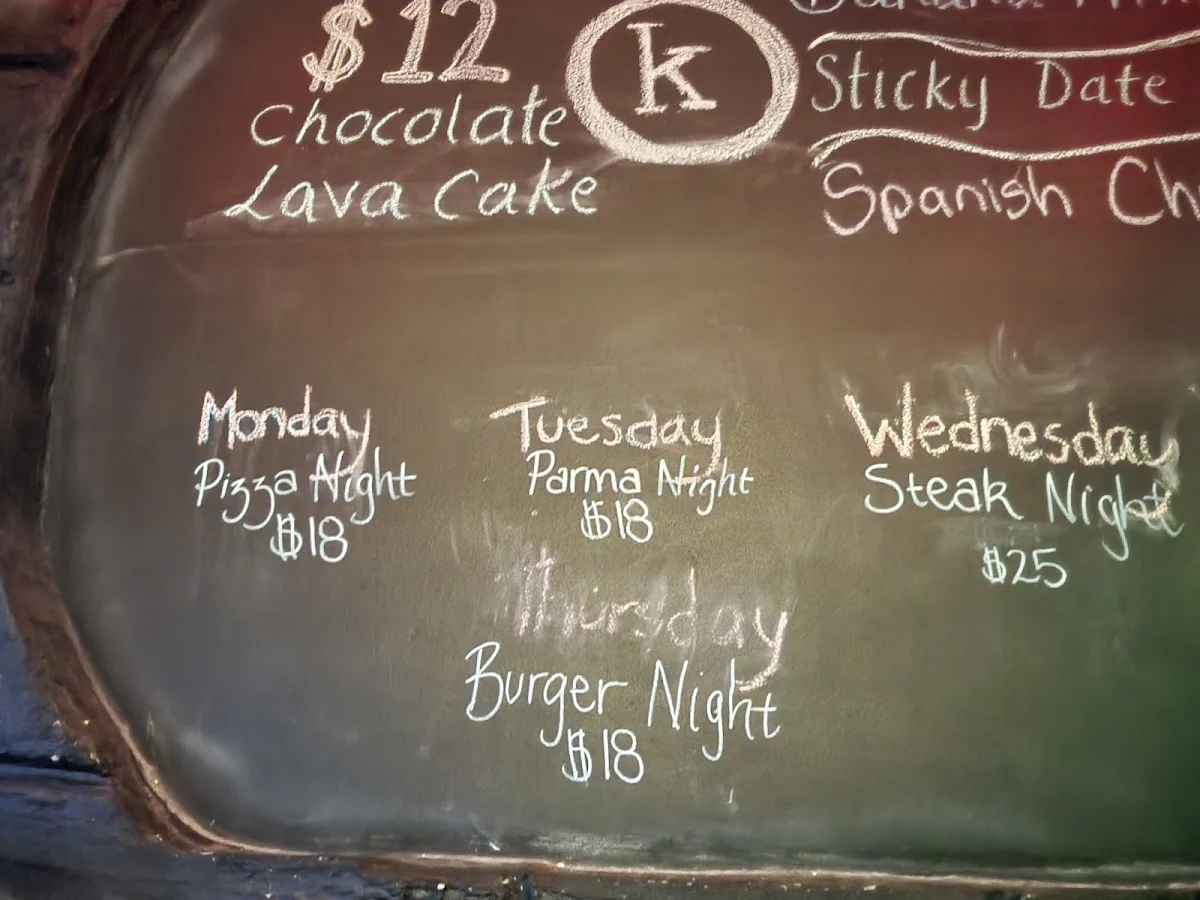 $12
Chocolate
Lava Cake
k
Sticky Date
Spanish Ch
Monday
Pizza Night
$18
Tuesday
Parma Night
$18
Wednesday
Steak Night
$25
Thursday
Burger Night
$18